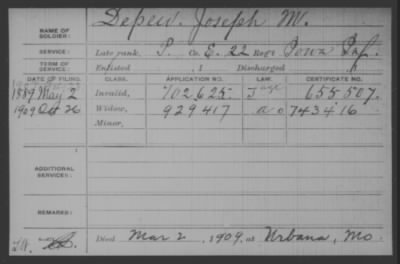 NAME OF SOLDIER: Depew, Joseph M.
SERVICE: Late rank, P. Co. E, 22 Reg't Iowa Inf.
TERM OF SERVICE: Enlisted , 1 Discharged
DATE OF FILING. CLASS. APPLICATION NO. LAW. CERTIFICATE NO.
1889 May 2 Invalid, 702625 655507.
1909 Oct 26 Widow, 929417 743416
Minor,
ADDITIONAL SERVICES:
REMARKS:
Died Mar 2, 1909, at Urbana, Mo.